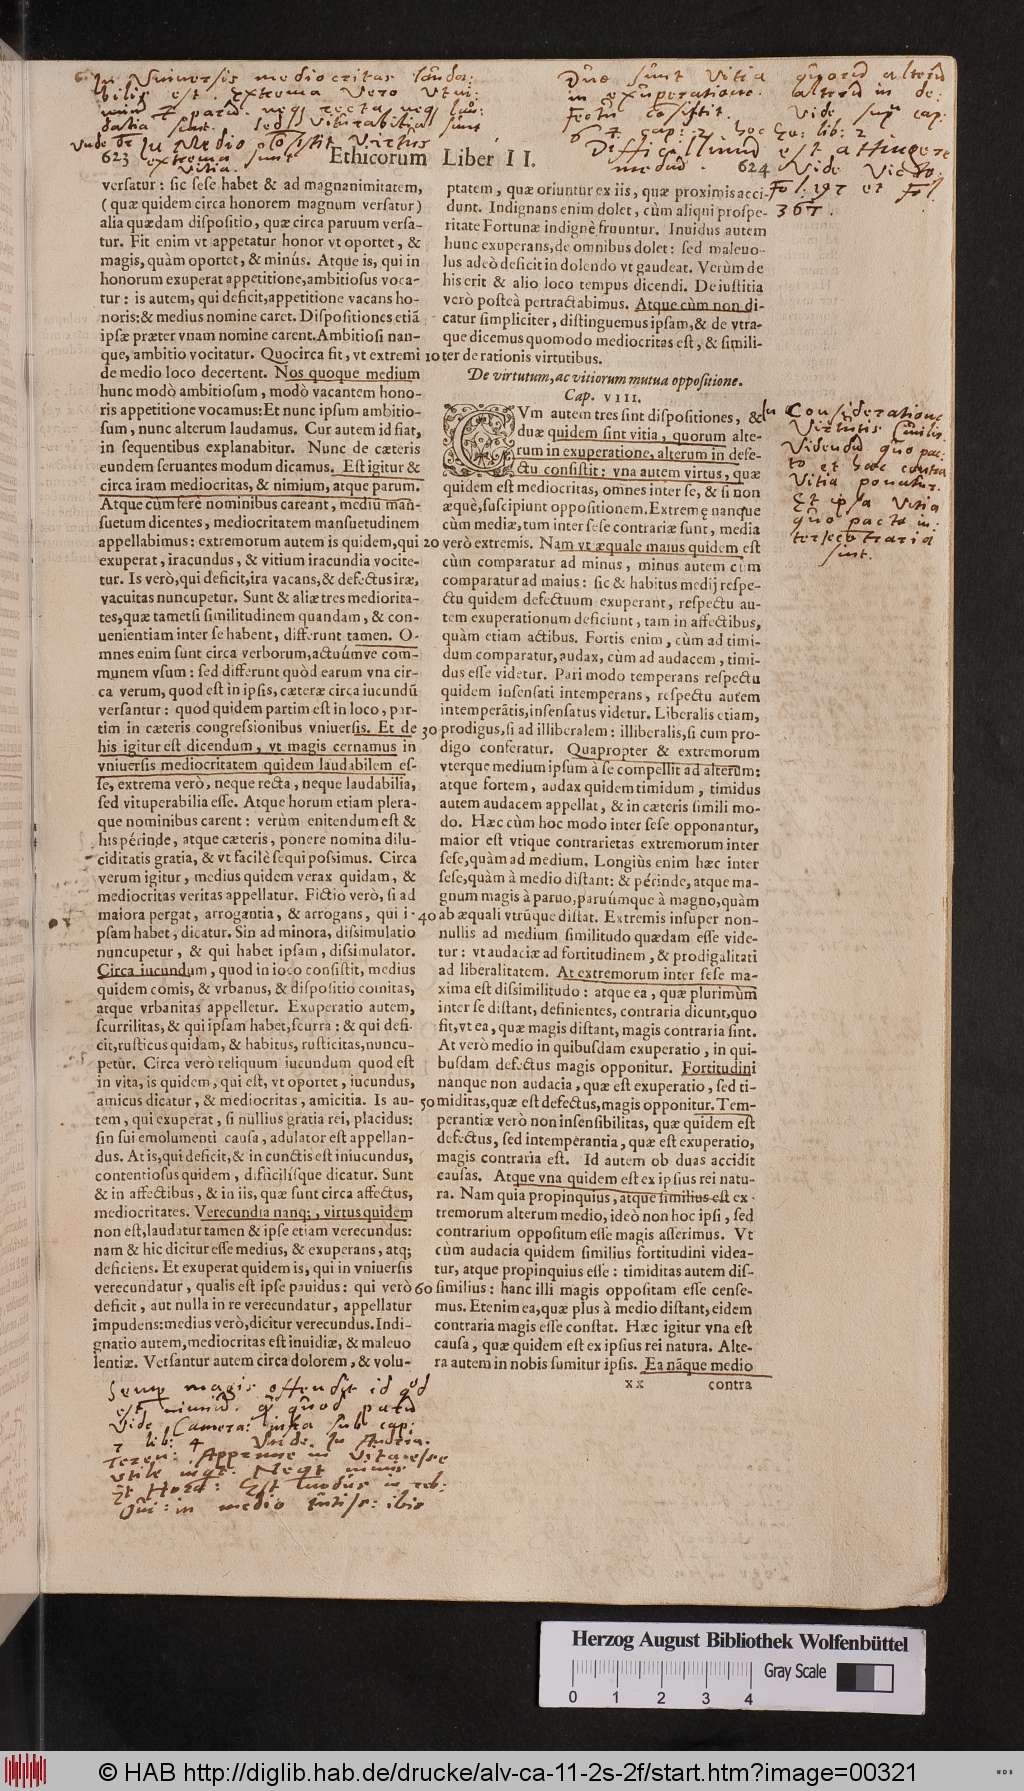 In Vniuersis mediocritas lauda:
bilis est. Extrema Vero Vtui:
recta neq lau:
sunt. Sed Vituperabilia sunt
Vnde In Medio cosistit Virtus
extrema sunt
Vitia.
Duo sunt Vitia quorum alterum
in exuperatione. alterum in de:
fectu cosistit. Vide sup cap:
6 cap: 2 hoc lib: 2
Difficillimum est attingere
medium. Vide Victo.
Fol. 197 et Fol.
367.
623 Ethicorum Liber II. 624
versatur: sic sese habet & ad magnanimitatem,
(quæ quidem circa honorem magnum versatur)
alia quædam dispositio, quæ circa paruum versa-
tur. Fit enim vt appetatur honor vt oportet, &
magis, quàm oportet, & minús. Atque is, qui in
honorum exuperat appetitione, ambitiosus voca-
tur: is autem, qui deficit, appetitione vacans ho-
noris: & medius nomine caret. Dispositiones etiã
ipsæ præter vnam nomine carent. Ambitiosi nan-
que, ambitio vocitatur. Quocirca fit, vt extremi
de medio loco decertent. Nos quoque medium
hunc modò ambitiosum, modò vacantem hono-
ris appetitione vocamus: Et nunc ipsum ambitio-
sum, nunc alterum laudamus. Cur autem id fiat,
in sequentibus explanabitur. Nunc de cæteris
eundem seruantes modum dicamus. Est igitur &
circa iram mediocritas, & nimium, atque parum.
Atque cùm ferè nominibus careant, mediũ man-
suetum dicentes, mediocritatem mansuetudinem
appellabimus: extremorum autem is quidem, qui
exuperat, iracundus, & vitium iracundia vocite-
tur. Is verò, qui deficit, ira vacans, & defectus iræ,
vacuitas nuncupetur. Sunt & aliæ tres mediocrita-
tes, quæ tametsi similitudinem quandam, & con-
uenientiam inter se habent, differunt tamen. O-
mnes enim sunt circa verborum, actuúmve com-
munem vsum: sed differunt quòd earum vna cir-
ca verum, quod est in ipsis, cæteræ circa iucundũ
versantur: quod quidem partim est in loco, par-
tim in cæteris congressionibus vniuersis. Et de
his igitur est dicendum, vt magis cernamus in
vniuersis mediocritatem quidem laudabilem es-
se, extrema verò, neque recta, neque laudabilia,
sed vituperabilia esse. Atque horum etiam plera-
que nominibus carent: verùm enitendum est &
his périnde, atque cæteris, ponere nomina dilu-
ciditatis gratia, & vt facilè sequi possimus. Circa
verum igitur, medius quidem verax quidam, &
mediocritas veritas appellatur. Fictio verò, si ad
maiora pergat, arrogantia, & arrogans, qui i-
psam habet, dicatur. Sin ad minora, dissimulatio
nuncupetur, & qui habet ipsam, dissimulator.
Circa iucundum, quod in ioco consistit, medius
quidem comis, & vrbanus, & dispositio comitas,
atque vrbanitas appelletur. Exuperatio autem,
scurrilitas, & qui ipsam habet, scurra: & qui defi-
cit, rusticus quidam, & habitus, rusticitas, nuncu-
petur. Circa verò reliquum iucundum quod est
in vita, is quidem, qui est, vt oportet, iucundus,
amicus dicatur, & mediocritas, amicitia. Is au-
tem, qui exuperat, si nullius gratia rei, placidus:
sin sui emolumenti causa, adulator est appellan-
dus. At is, qui deficit, & in cunctis est iniucundus,
contentiosus quidem, difficilísque dicatur. Sunt
& in affectibus, & in iis, quæ sunt circa affectus,
mediocritates. Verecundia nanq;, virtus quidem
non est, laudatur tamen & ipse etiam verecundus:
nam & hic dicitur esse medius, & exuperans, atq;
deficiens. Et exuperat quidem is, qui in vniuersis
verecundatur, qualis est ipse pauidus: qui verò
deficit, aut nulla in re verecundatur, appellatur
impudens: medius verò, dicitur verecundus. Indi-
gnatio autem, mediocritas est inuidiæ, & maleuo
lentiæ. Versantur autem circa dolorem, & volu-
ptatem, quæ oriuntur ex iis, quæ proximis acci-
dunt. Indignans enim dolet, cùm aliqui prospe-
ritate Fortunæ indignè fruuntur. Inuidus autem
hunc exuperans, de omnibus dolet: sed maleuo-
lus adeò deficit in dolendo vt gaudeat. Verùm de
his erit & alio loco tempus dicendi. De iustitia
verò posteà pertractabimus. Atque cùm non di-
catur simpliciter, distinguemus ipsam, & de vtra-
que dicemus quomodo mediocritas est, & simili-
10 ter de rationis virtutibus.
De virtutum, ac vitiorum mutua oppositione.
Cap. VIII.
CVm autem tres sint dispositiones, &
duæ quidem sint vitia, quorum alte-
rum in exuperatione, alterum in defe-
ctu consistit: vna autem virtus, quæ
quidem est mediocritas, omnes inter se, & si non
æquè, suscipiunt oppositionem. Extremę nanque
cùm mediæ, tum inter sese contrariæ sunt, media
20 verò extremis. Nam vt æquale maius quidem est
cùm comparatur ad minus, minus autem cùm
comparatur ad maius: sic & habitus medij respe-
ctu quidem defectuum exuperant, respectu au-
tem exuperationum deficiunt, tam in affectibus,
quàm etiam actibus. Fortis enim, cùm ad timi-
dum comparatur, audax, cùm ad audacem, timi-
dus esse videtur. Pari modo temperans respectu
quidem insensati intemperans, respectu autem
intemperãtis, insensatus videtur. Liberalis etiam,
30 prodigus, si ad illiberalem: illiberalis, si cum pro-
digo conferatur. Quapropter & extremorum
vterque medium ipsum à se compellit ad alterum:
atque fortem, audax quidem timidum, timidus
autem audacem appellat, & in cæteris simili mo-
do. Hæc cùm hoc modo inter sese opponantur,
maior est vtique contrarietas extremorum inter
sese, quàm ad medium. Longiùs enim hæc inter
sese, quàm à medio distant: & périnde, atque ma-
gnum magis à paruo, paruúmque à magno, quàm
40 ab æquali vtrũque distat. Extremis insuper non-
nullis ad medium similitudo quædam esse vide-
tur: vt audaciæ ad fortitudinem, & prodigalitati
ad liberalitatem. At extremorum inter sese ma-
xima est dissimilitudo: atque ea, quæ plurimùm
inter se distant, definientes, contraria dicunt, quo
fit, vt ea, quæ magis distant, magis contraria sint.
At verò medio in quibusdam exuperatio, in qui-
busdam defectus magis opponitur. Fortitudini
nanque non audacia, quæ est exuperatio, sed ti-
50 miditas, quæ est defectus, magis opponitur. Tem-
perantiæ verò non insensibilitas, quæ quidem est
defectus, sed intemperantia, quæ est exuperatio,
magis contraria est. Id autem ob duas accidit
causas. Atque vna quidem est ex ipsius rei natu-
ra. Nam quia propinquius, atque similius est ex-
tremorum alterum medio, ideò non hoc ipsi, sed
contrarium oppositum esse magis asserimus. Vt
cùm audacia quidem similius fortitudini videa-
tur, atque propinquius esse: timiditas autem dis-
60 similius: hanc illi magis oppositam esse cense-
mus. Etenim ea, quæ plus à medio distant, eidem
contraria magis esse constat. Hæc igitur vna est
causa, quæ quidem est ex ipsius rei natura. Alte-
ra autem in nobis sumitur ipsis. Ea náque medio
xx contra
In Consideratione
Virtutis Ciuilis
Videndum quo pac:
to et hæc contra
Vitia ponatur.
Et ipsa Vitia
quo pacto in:
ter se cotraria
sint.
Semp magis offendit id qod
est nimium. quod parum
Vide Camera: infra sub cap:
7 lib: 4 Vnde In Andria.
Teren: Apprime in Vita esse
Vtile
Et Hora: Est modus in reb:
Qui: in medio
Herzog August Bibliothek Wolfenbüttel
Gray Scale
0 1 2 3 4
© HAB http://diglib.hab.de/drucke/alv-ca-11-2s-2f/start.htm?image=00321
WDB